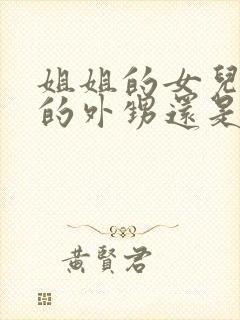 姐姐的女兒
的外甥還是
黃賢君